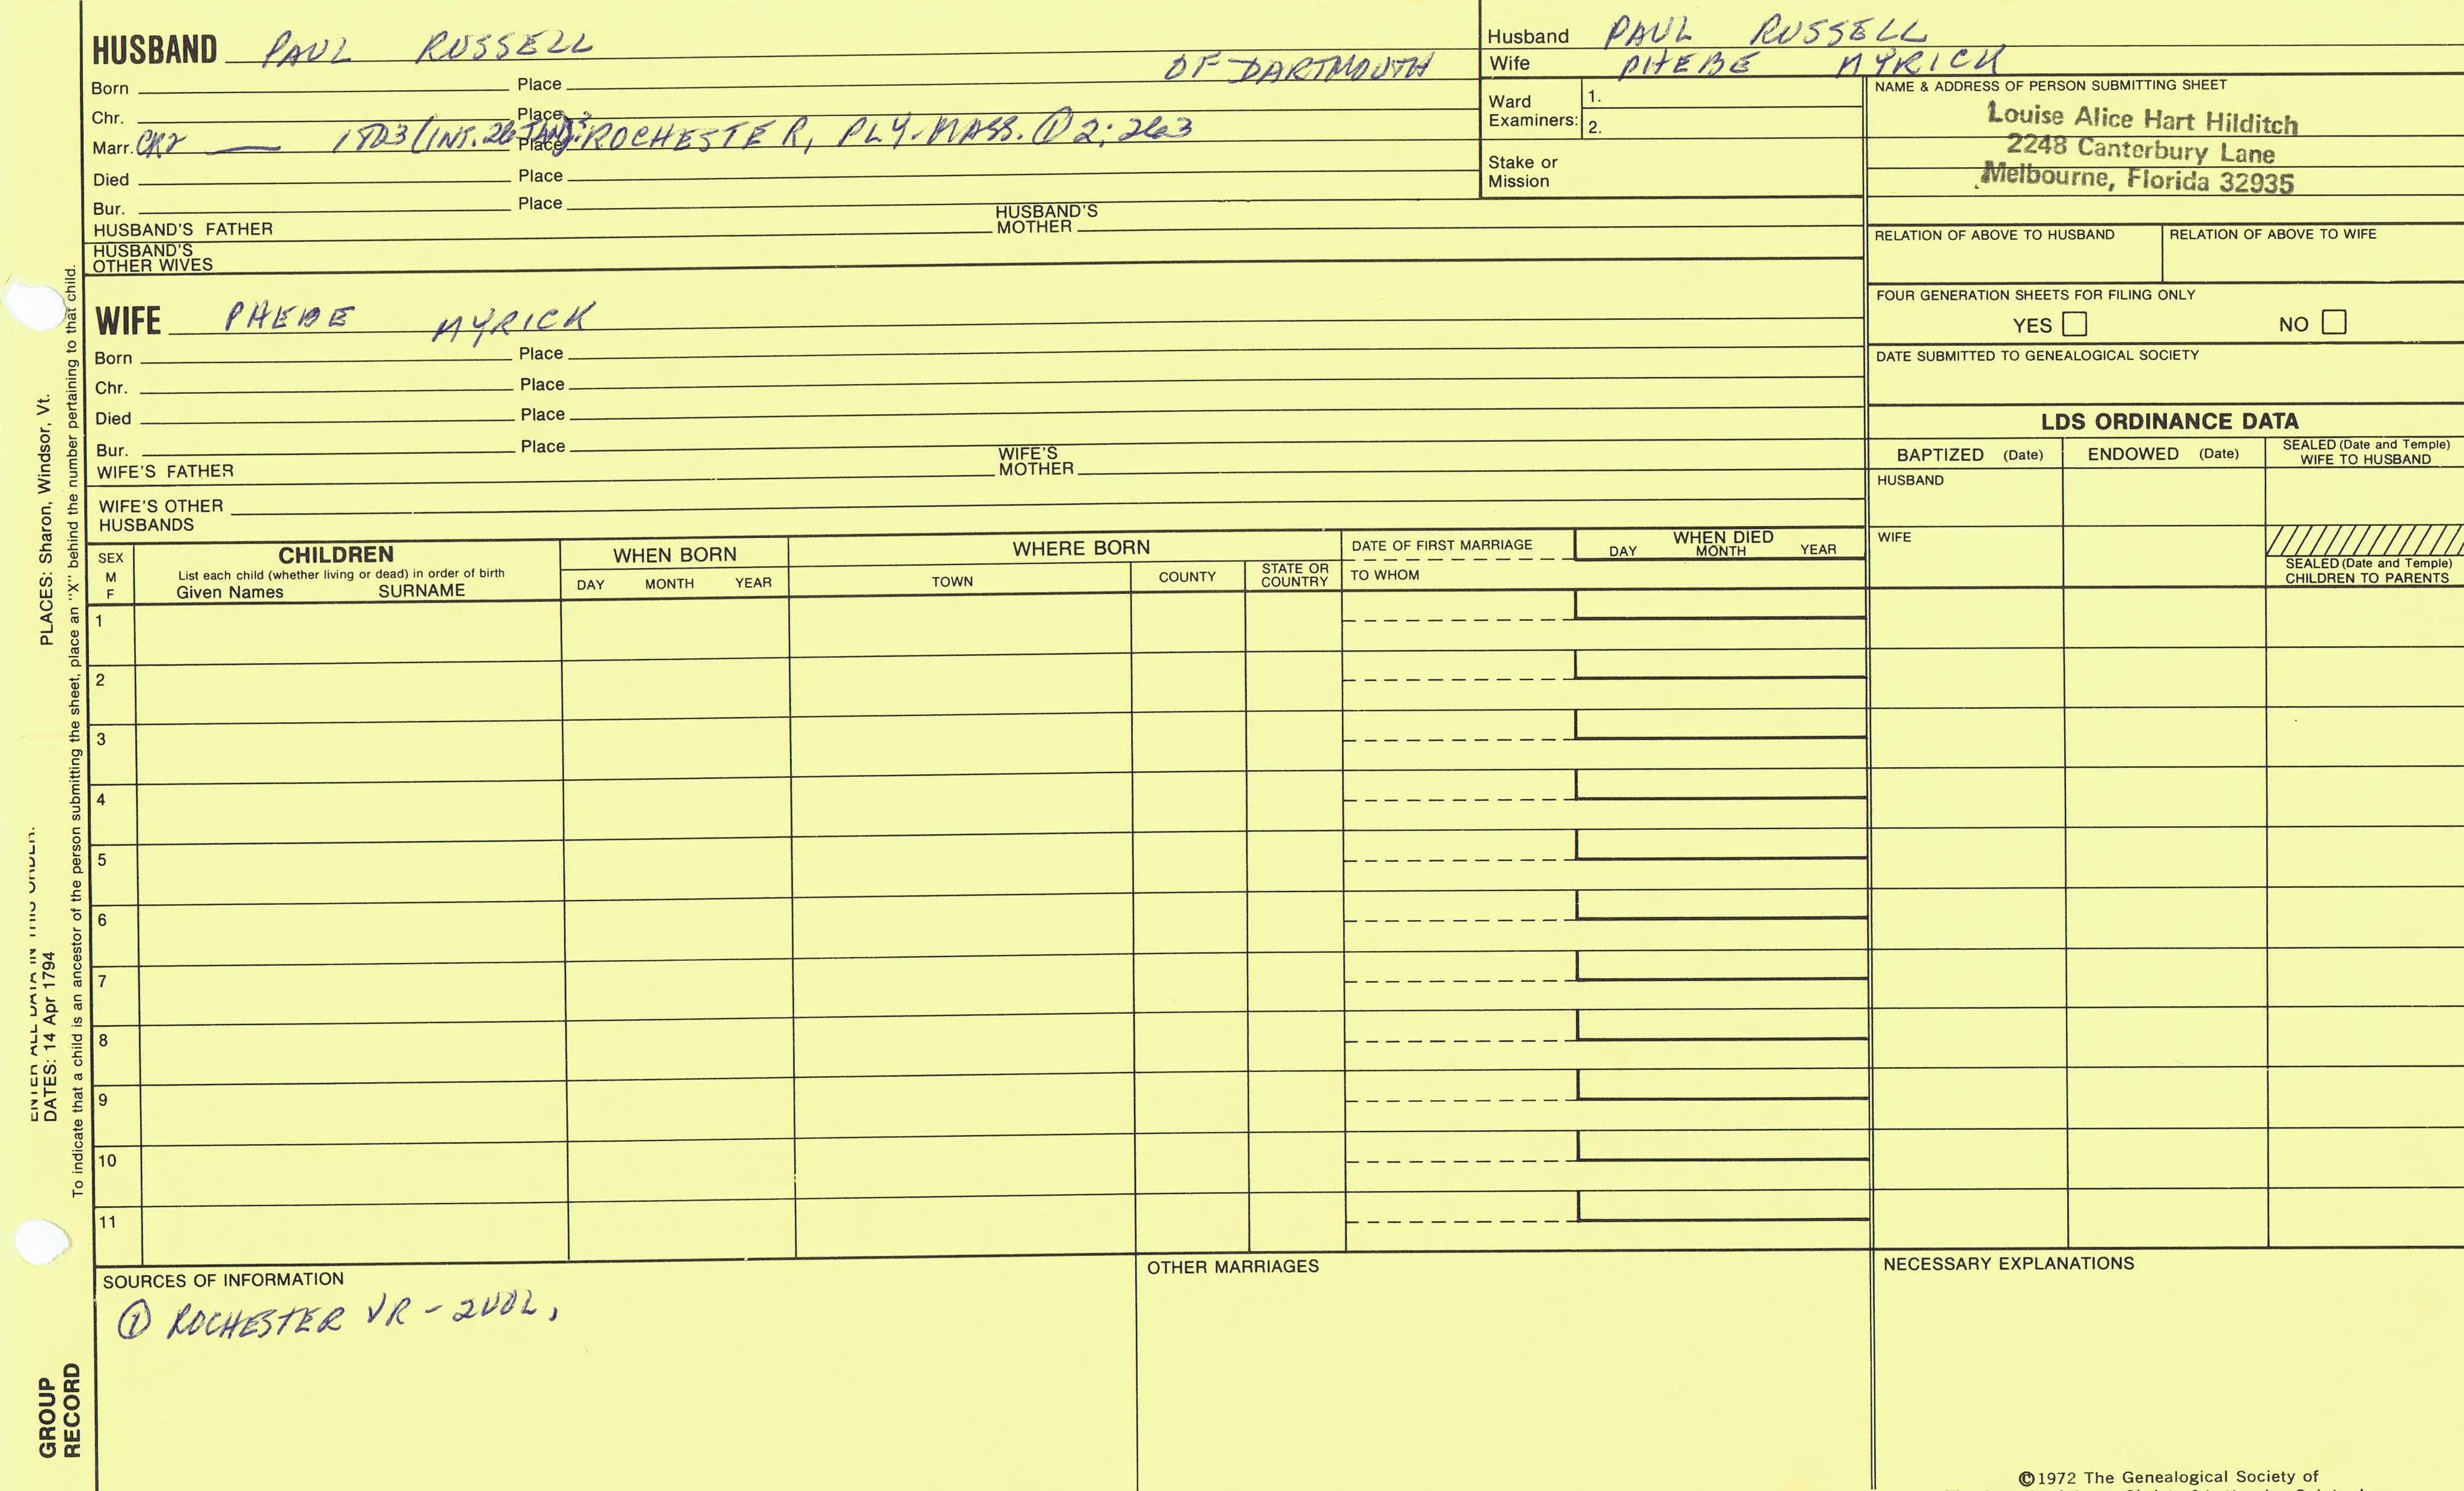 HUSBAND PAUL RUSSELL
OF DARTMOUTH
Born Place
Chr. Place
Marr. CR2 — 1803 (INT. 26 JAN) Place ROCHESTER, PLY. MASS. ① 2:263
Died Place
Bur. Place
HUSBAND'S FATHER HUSBAND'S MOTHER
HUSBAND'S
OTHER WIVES
Husband PAUL RUSSELL
Wife PHEBE MYRICK
Ward
Examiners:
1.
2.
Stake or
Mission
NAME & ADDRESS OF PERSON SUBMITTING SHEET
Louise Alice Hart Hilditch
2248 Canterbury Lane
Melbourne, Florida 32935
RELATION OF ABOVE TO HUSBAND RELATION OF ABOVE TO WIFE
FOUR GENERATION SHEETS FOR FILING ONLY
YES NO
DATE SUBMITTED TO GENEALOGICAL SOCIETY
WIFE PHEBE MYRICK
Born Place
Chr. Place
Died Place
Bur. Place
WIFE'S FATHER WIFE'S MOTHER
WIFE'S OTHER
HUSBANDS
LDS ORDINANCE DATA
BAPTIZED (Date) ENDOWED (Date) SEALED (Date and Temple)
WIFE TO HUSBAND
HUSBAND
WIFE
SEALED (Date and Temple)
CHILDREN TO PARENTS
SEX
M
F
CHILDREN
List each child (whether living or dead) in order of birth
Given Names SURNAME
WHEN BORN
DAY MONTH YEAR
WHERE BORN
TOWN COUNTY STATE OR COUNTRY
DATE OF FIRST MARRIAGE
TO WHOM
WHEN DIED
DAY MONTH YEAR
1
2
3
4
5
6
7
8
9
10
11
SOURCES OF INFORMATION
① ROCHESTER VR - 2VOL,
OTHER MARRIAGES
NECESSARY EXPLANATIONS
©1972 The Genealogical Society of
PLACES: Sharon, Windsor, Vt.
ENTER ALL DATA IN THIS ORDER:
DATES: 14 Apr 1794
To indicate that a child is an ancestor of the person submitting the sheet, place an "X" behind the number pertaining to that child.
GROUP
RECORD